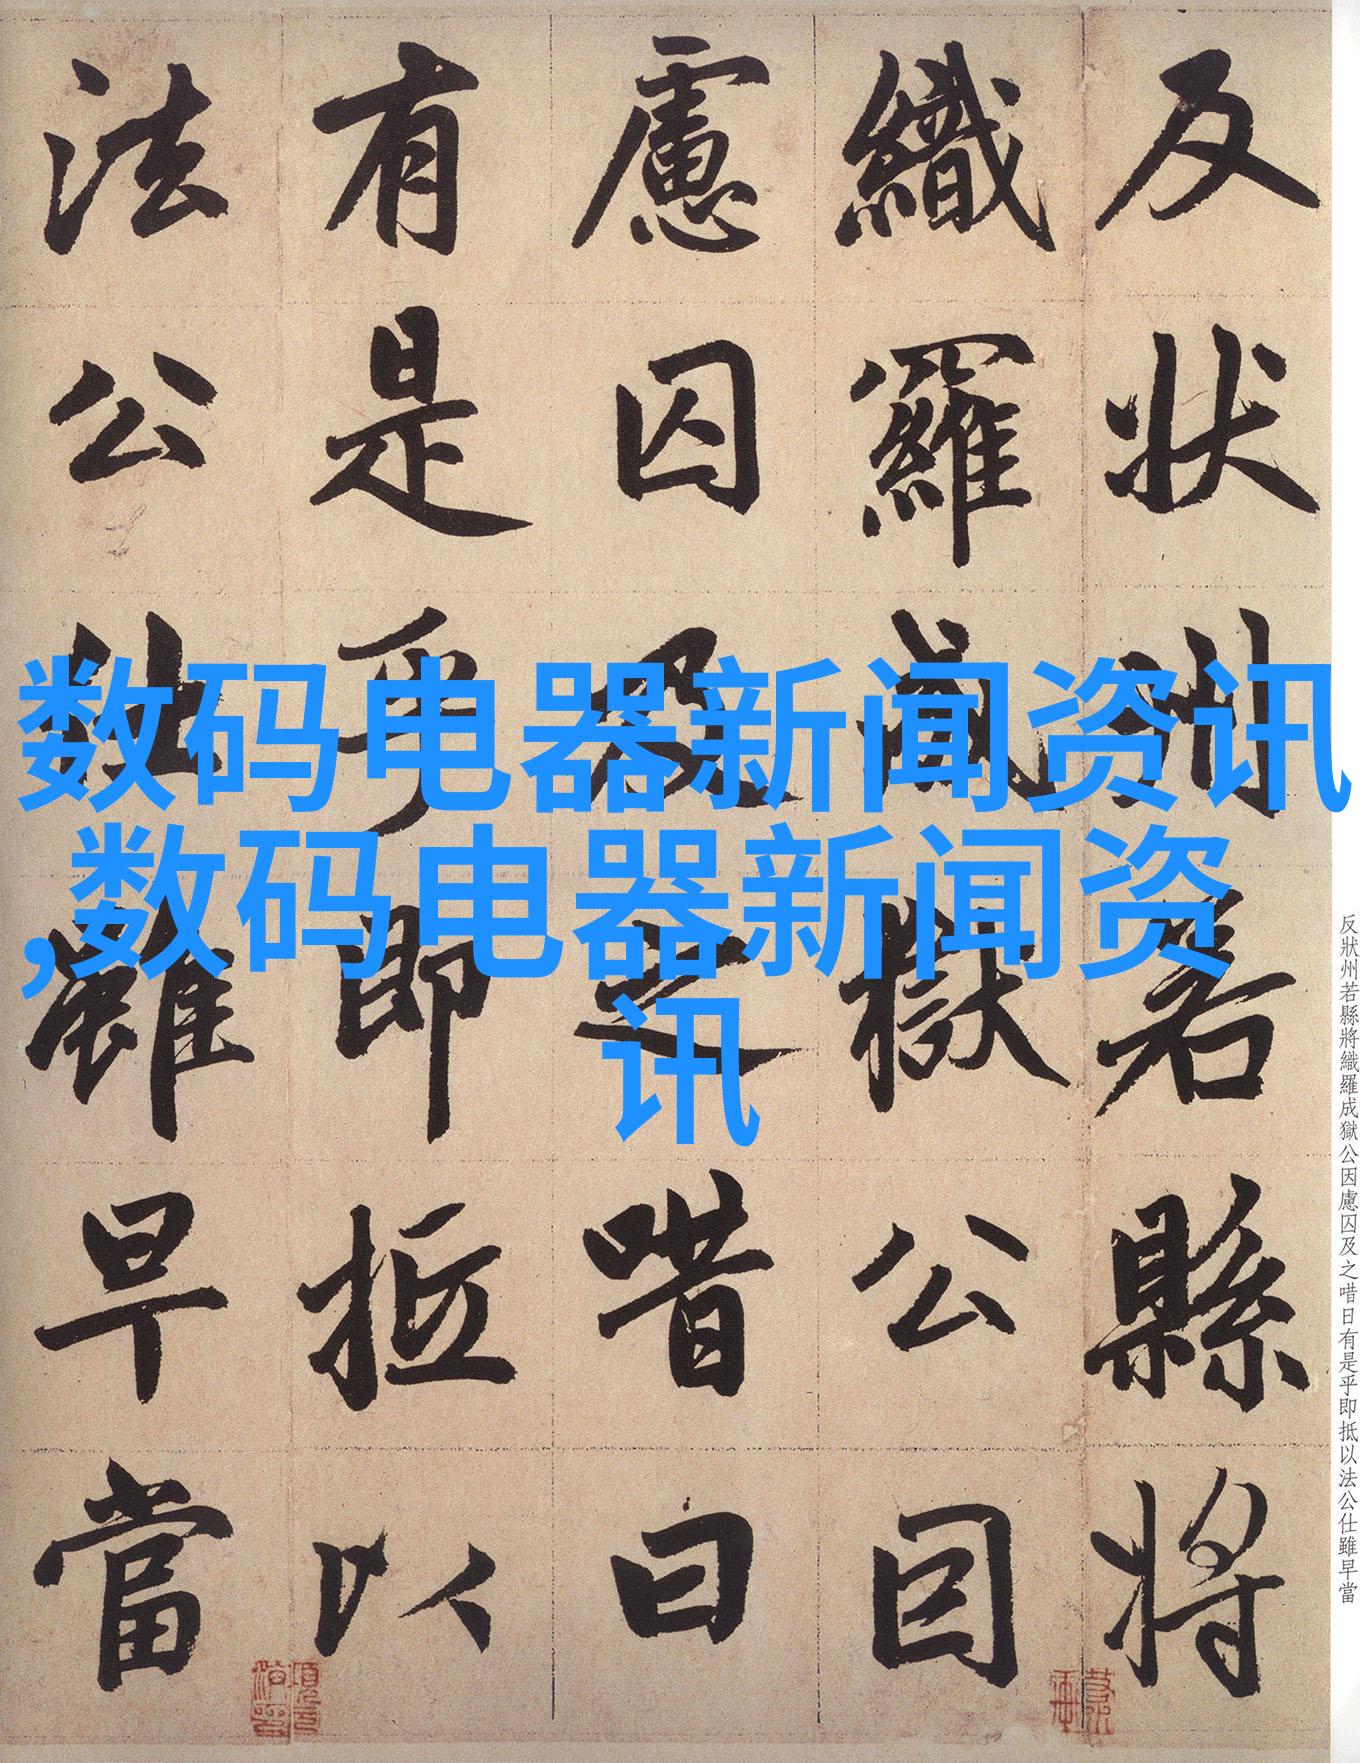 反状州若縣将
織羅成獄公因
慮囚及之唶曰
有是乎即抵以
法公仕雖早當
数码电器新闻资讯
,数码电器新闻资
讯
反狀州若縣將織羅成獄公因慮囚及之唶日有是乎即抵以法公仕雖早當